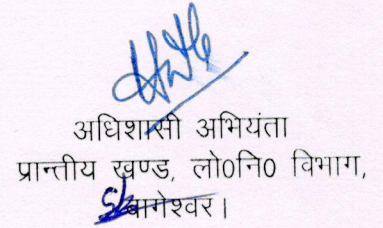 अधिशासी अभियंता
प्रान्तीय खण्ड, लो0नि0 विभाग,
बागेश्वर।